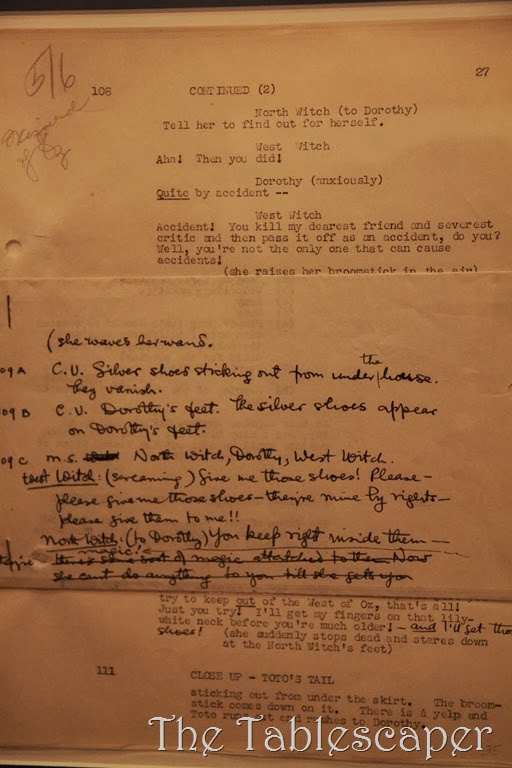 5/6
27
108 CONTINUED (2)
North Witch (to Dorothy)
Tell her to find out for herself.
West Witch
Aha! Then you did!
Dorothy (anxiously)
Quite by accident --
West Witch
Accident! You kill my dearest friend and severest
critic and then pass it off as an accident, do you?
Well, you're not the only one that can cause
accidents!
(she raises her broomstick in the air)
(she waves her wand.
09A C.U. Silver shoes sticking out from under the house.
They vanish.
09B C.U. Dorothy's feet. The silver shoes appear
on Dorothy's feet.
09C M.S. North Witch, Dorothy, West Witch.
West Witch: (screaming) Give me those shoes! Please –
please give me those shoes – they're mine by rights –
please give them to me!!
North Witch: (to Dorothy) You keep right inside them –
magic!
there's some sort of magic attatched to them Now
she can't do anything to you till she gets you
try to keep out of the West of Oz, that's all!
Just you try! I'll get my fingers on that lily-
white neck before you're much older! – and I'll get those
shoes! (she suddenly stops dead and stares down
at the North Witch's feet)
111 CLOSE UP - TOTO'S TAIL
sticking out from under the skirt. The broom-
stick comes down on it. There is a yelp and
Toto runs out and rushes to Dorothy.
The Tablescaper